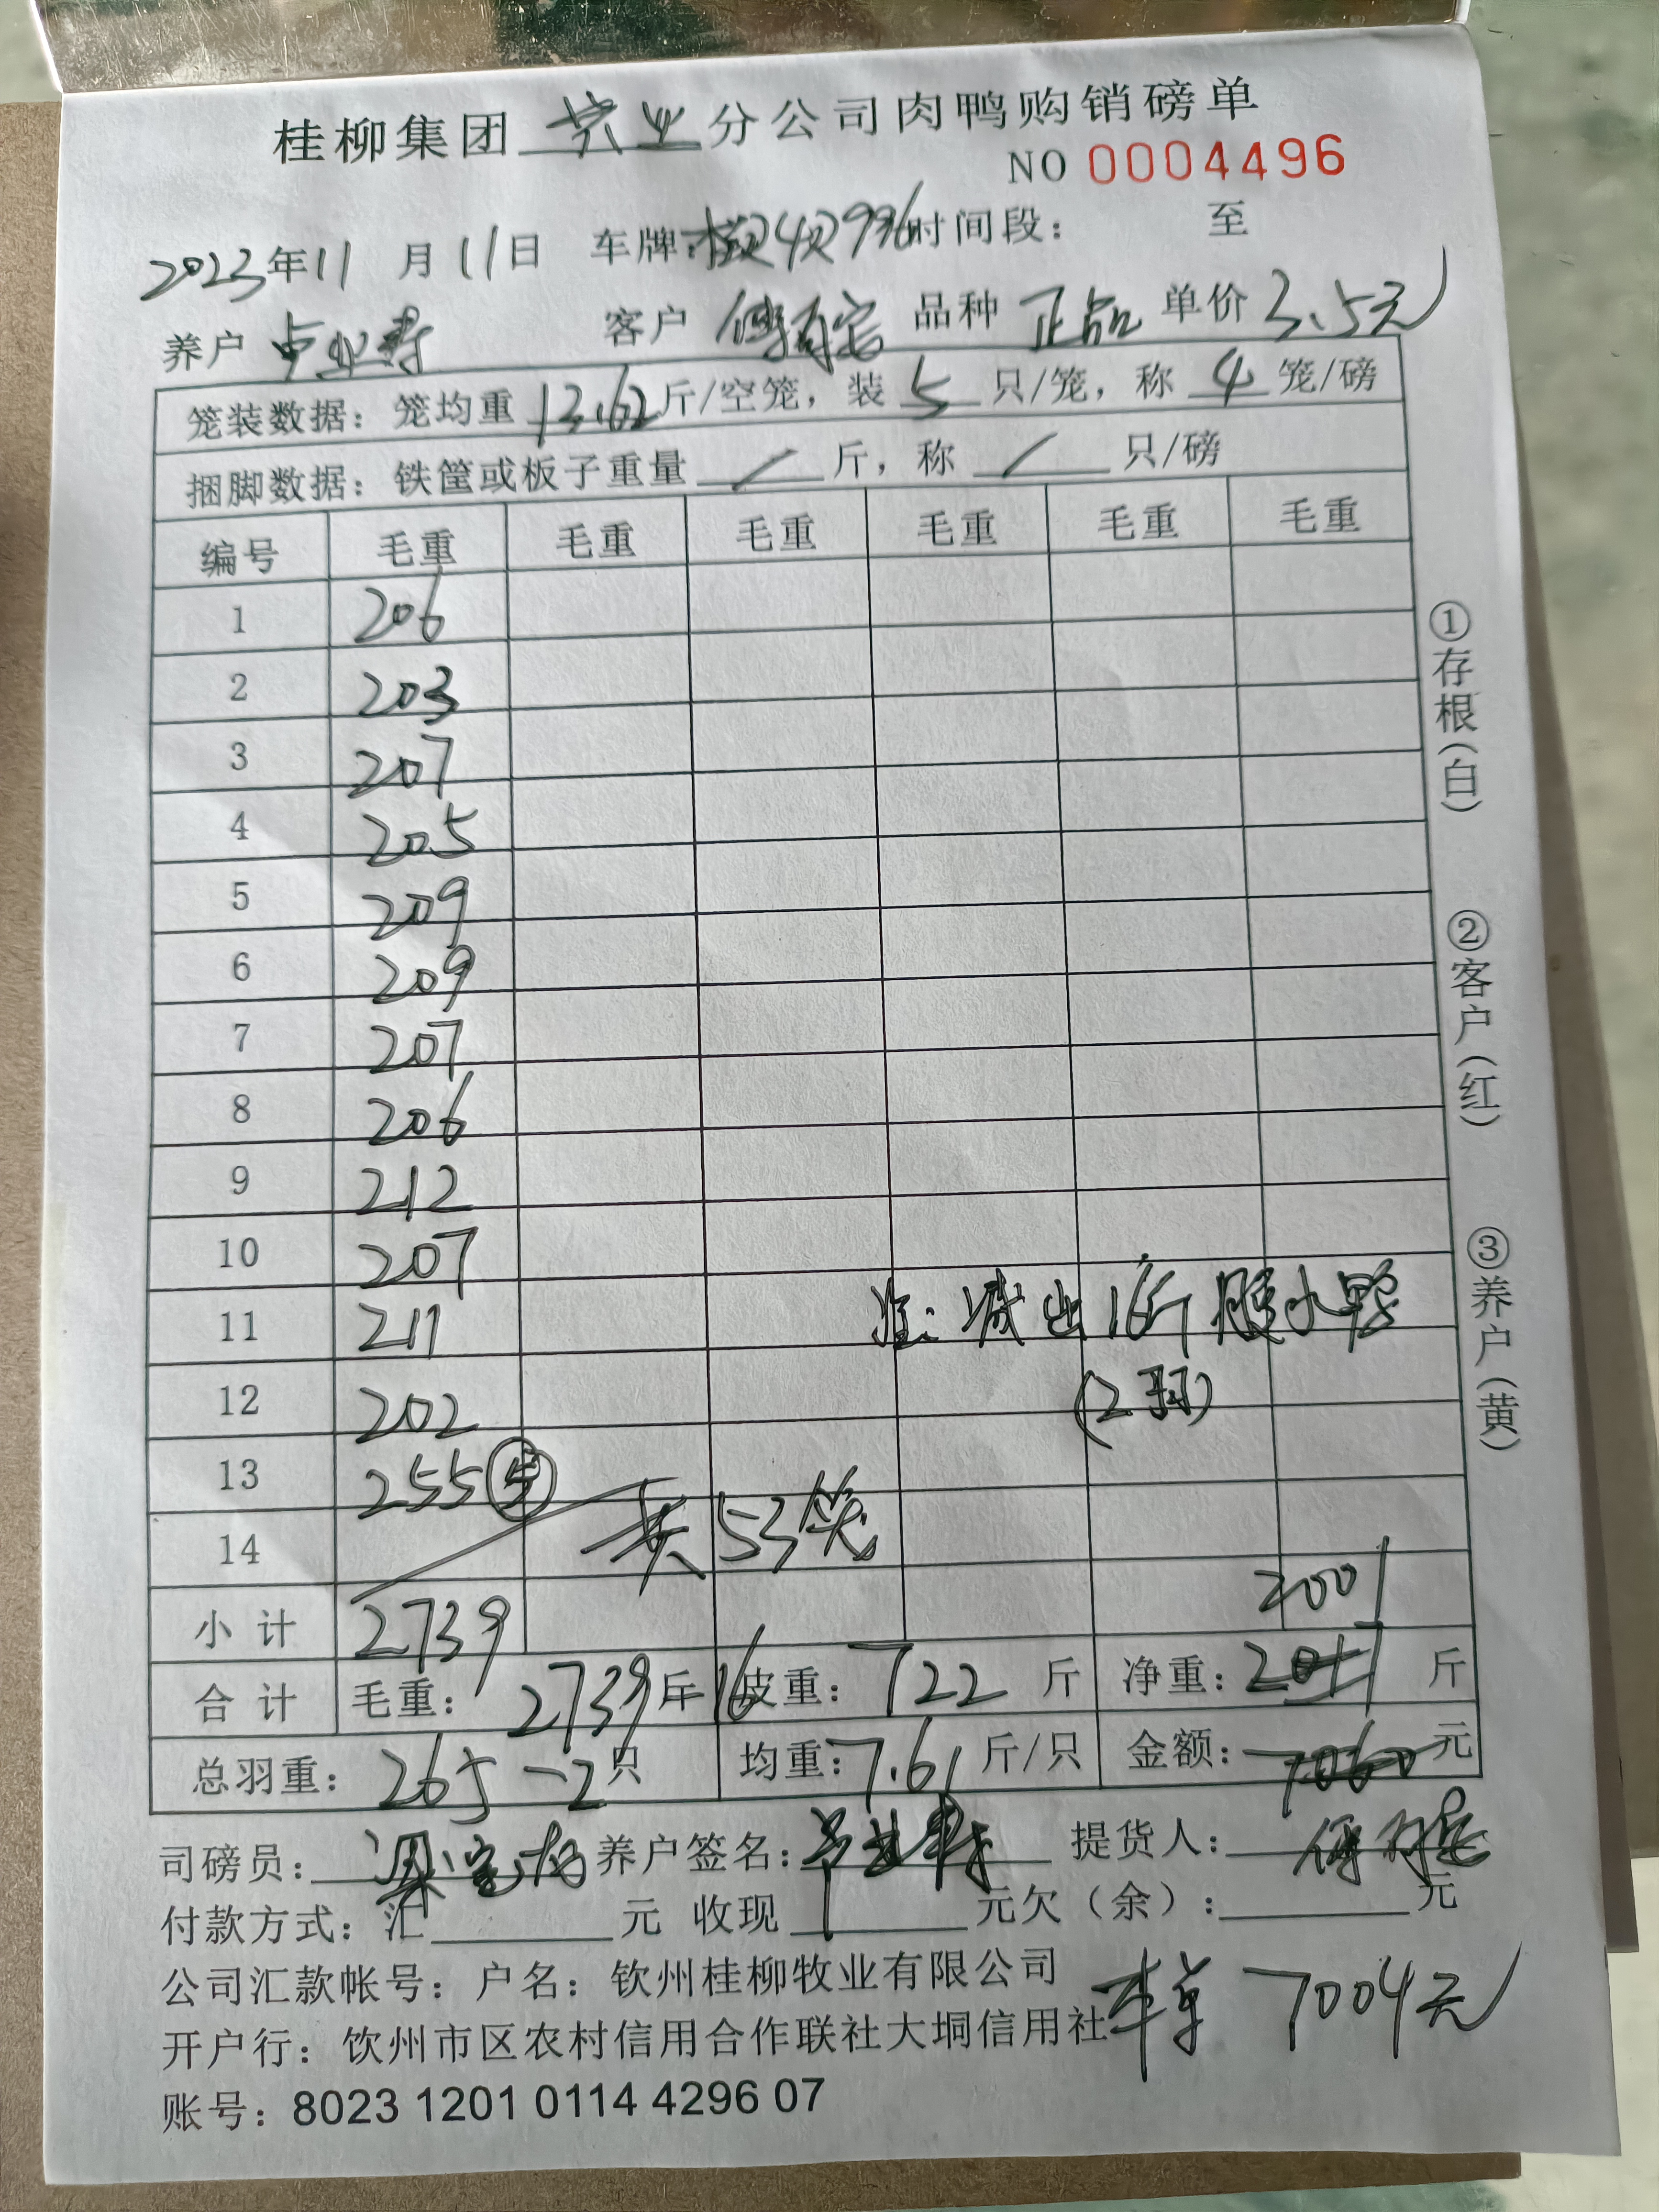 桂柳集团 分公司肉鸭购销磅单
NO 0004496
2023年11月11日 车牌: 时间段: 至
养户 客户 品种 正品 单价 3.5元
笼装数据: 笼均重 13.62 斤/空笼, 装 5 只/笼, 称 4 笼/磅
捆脚数据: 铁筐或板子重量 / 斤, 称 / 只/磅
编号 毛重 毛重 毛重 毛重 毛重 毛重
1 206
2 203
3 207
4 205
5 209
6 209
7 207
8 206
9 212
10 207
11 211 注: 减出16斤 水鸭
12 202 (2羽)
13 255 ⑤
14 共53笼
小计 2739 2001
合计 毛重: 2739斤-16 皮重: 722 斤 净重: 2017 斤
总羽重: 265-2只 均重: 7.61 斤/只 金额: 7060 元
司磅员: 养户签名: 提货人:
付款方式: 汇 元 收现 元欠(余): 元
公司汇款帐号: 户名: 钦州桂柳牧业有限公司
开户行: 钦州市区农村信用合作联社大垌信用社 本单 7004元
账号: 8023 1201 0114 4296 07
①存根(白)
②客户(红)
③养户(黄)